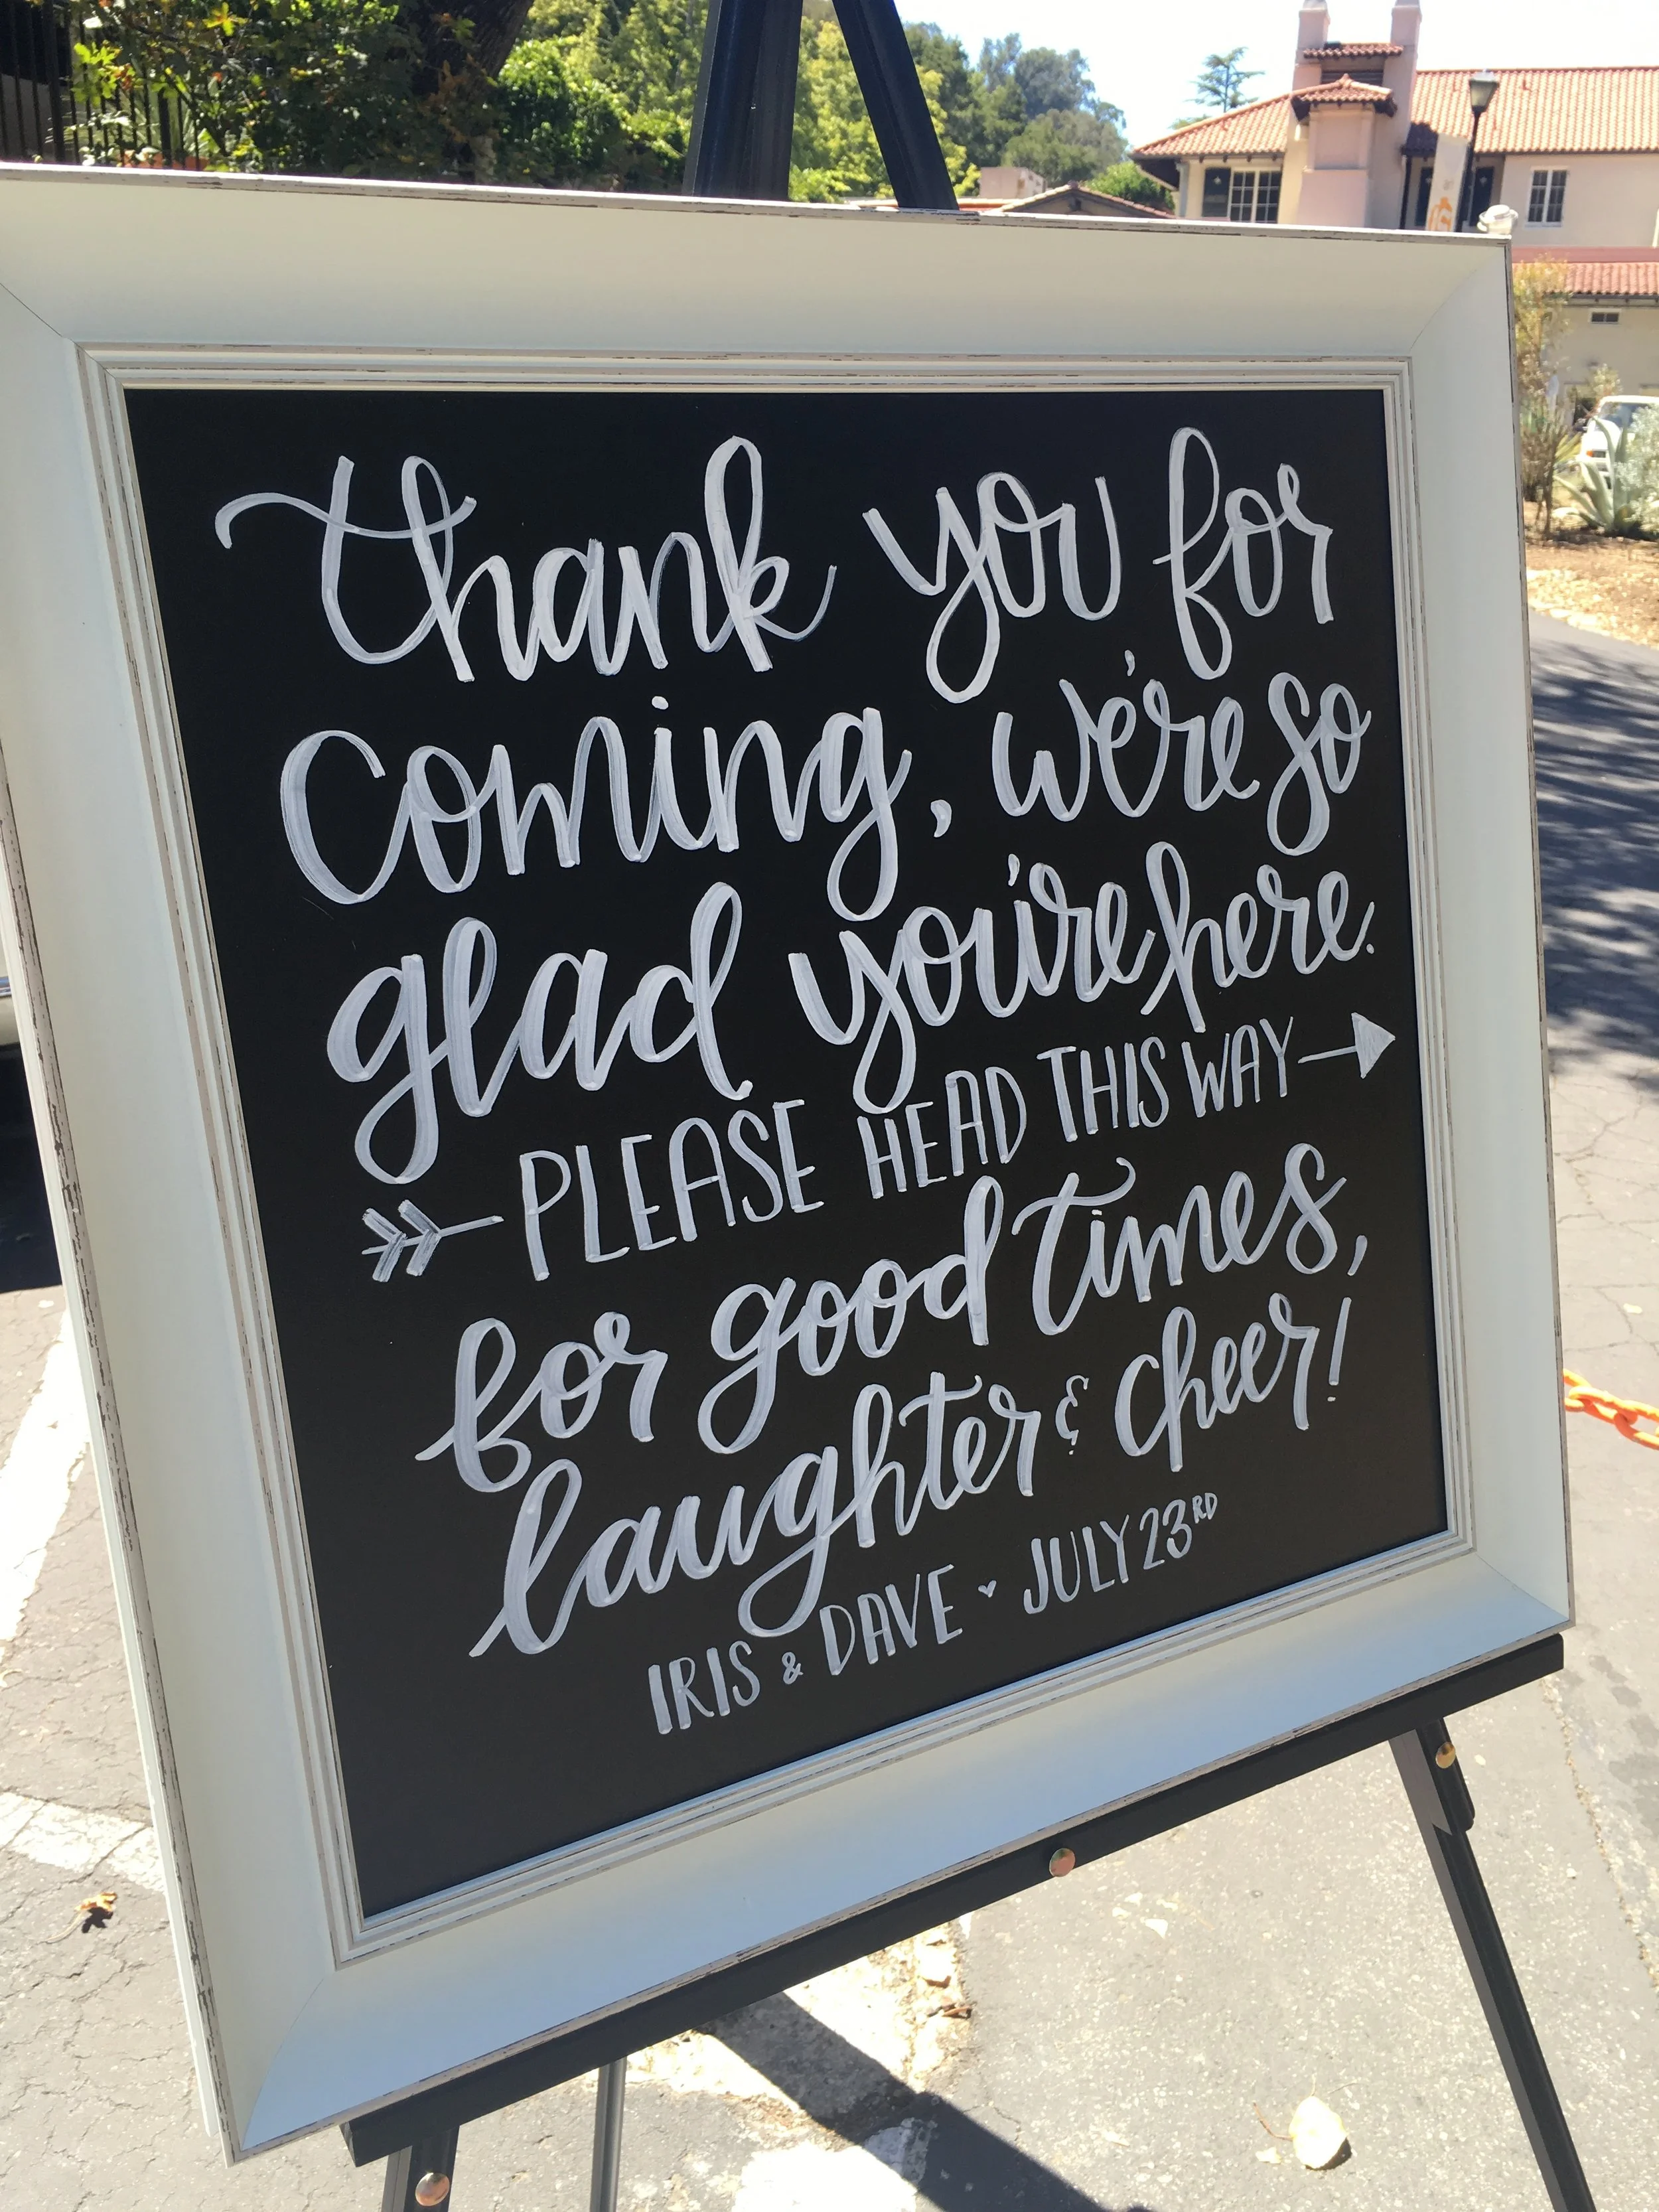 thank you for
coming, we're so
glad you're here.
PLEASE HEAD THIS WAY
for good times,
laughter & cheer!
IRIS & DAVE ♥ JULY 23RD